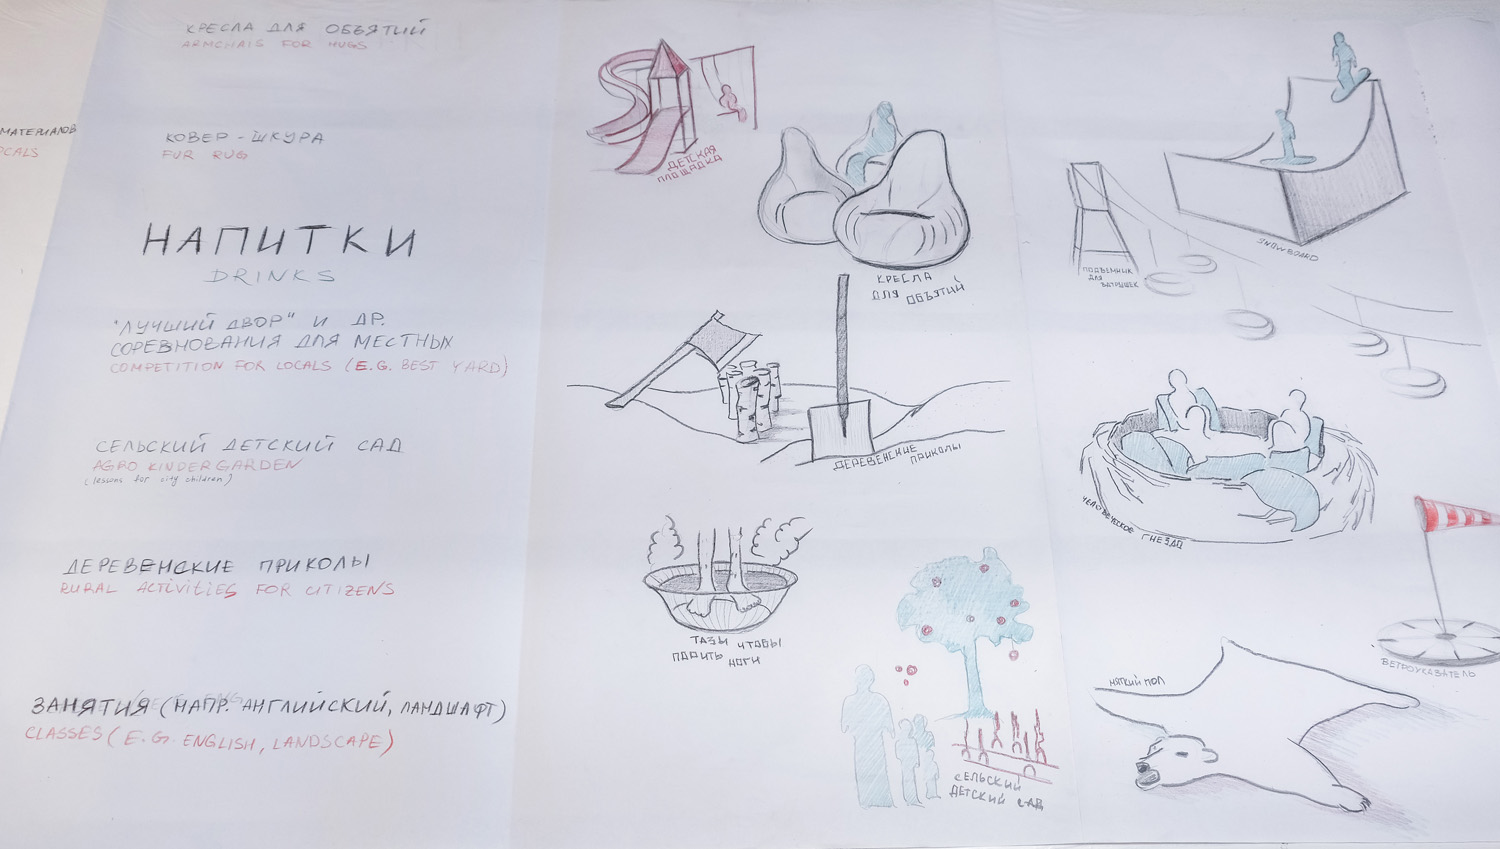 КРЕСЛА ДЛЯ ОБЪЯТИЙ
ARMCHAIS FOR HUGS
МАТЕРИАЛОВ
OCALS
КОВЕР - ШКУРА
FUR RUG
НАПИТКИ
DRINKS
"ЛУЧШИЙ ДВОР" И ДР.
СОРЕВНОВАНИЯ ДЛЯ МЕСТНЫХ
COMPETITION FOR LOCALS (E.G. BEST YARD)
СЕЛЬСКИЙ ДЕТСКИЙ САД
AGRO KINDERGARDEN
(lessons for city children)
ДЕРЕВЕНСКИЕ ПРИКОЛЫ
RURAL ACTIVITIES FOR CITIZENS
ЗАНЯТИЯ (НАПР. АНГЛИЙСКИЙ, ЛАНДШАФТ)
CLASSES (E.G. ENGLISH, LANDSCAPE)
ДЕТСКАЯ
ПЛОЩАДКА
КРЕСЛА
ДЛЯ ОБЪЯТИЙ
ДЕРЕВЕНСКИЕ ПРИКОЛЫ
ТАЗЫ ЧТОБЫ
ПАРИТЬ НОГИ
СЕЛЬСКИЙ
ДЕТСКИЙ САД
SNOWBOARD
ПОДЪЕМНИК
ДЛЯ
ВАТРУШЕК
ЧЕЛОВЕЧЕСКОЕ ГНЕЗДО
ВЕТРОУКАЗАТЕЛЬ
МЯГКИЙ ПОЛ